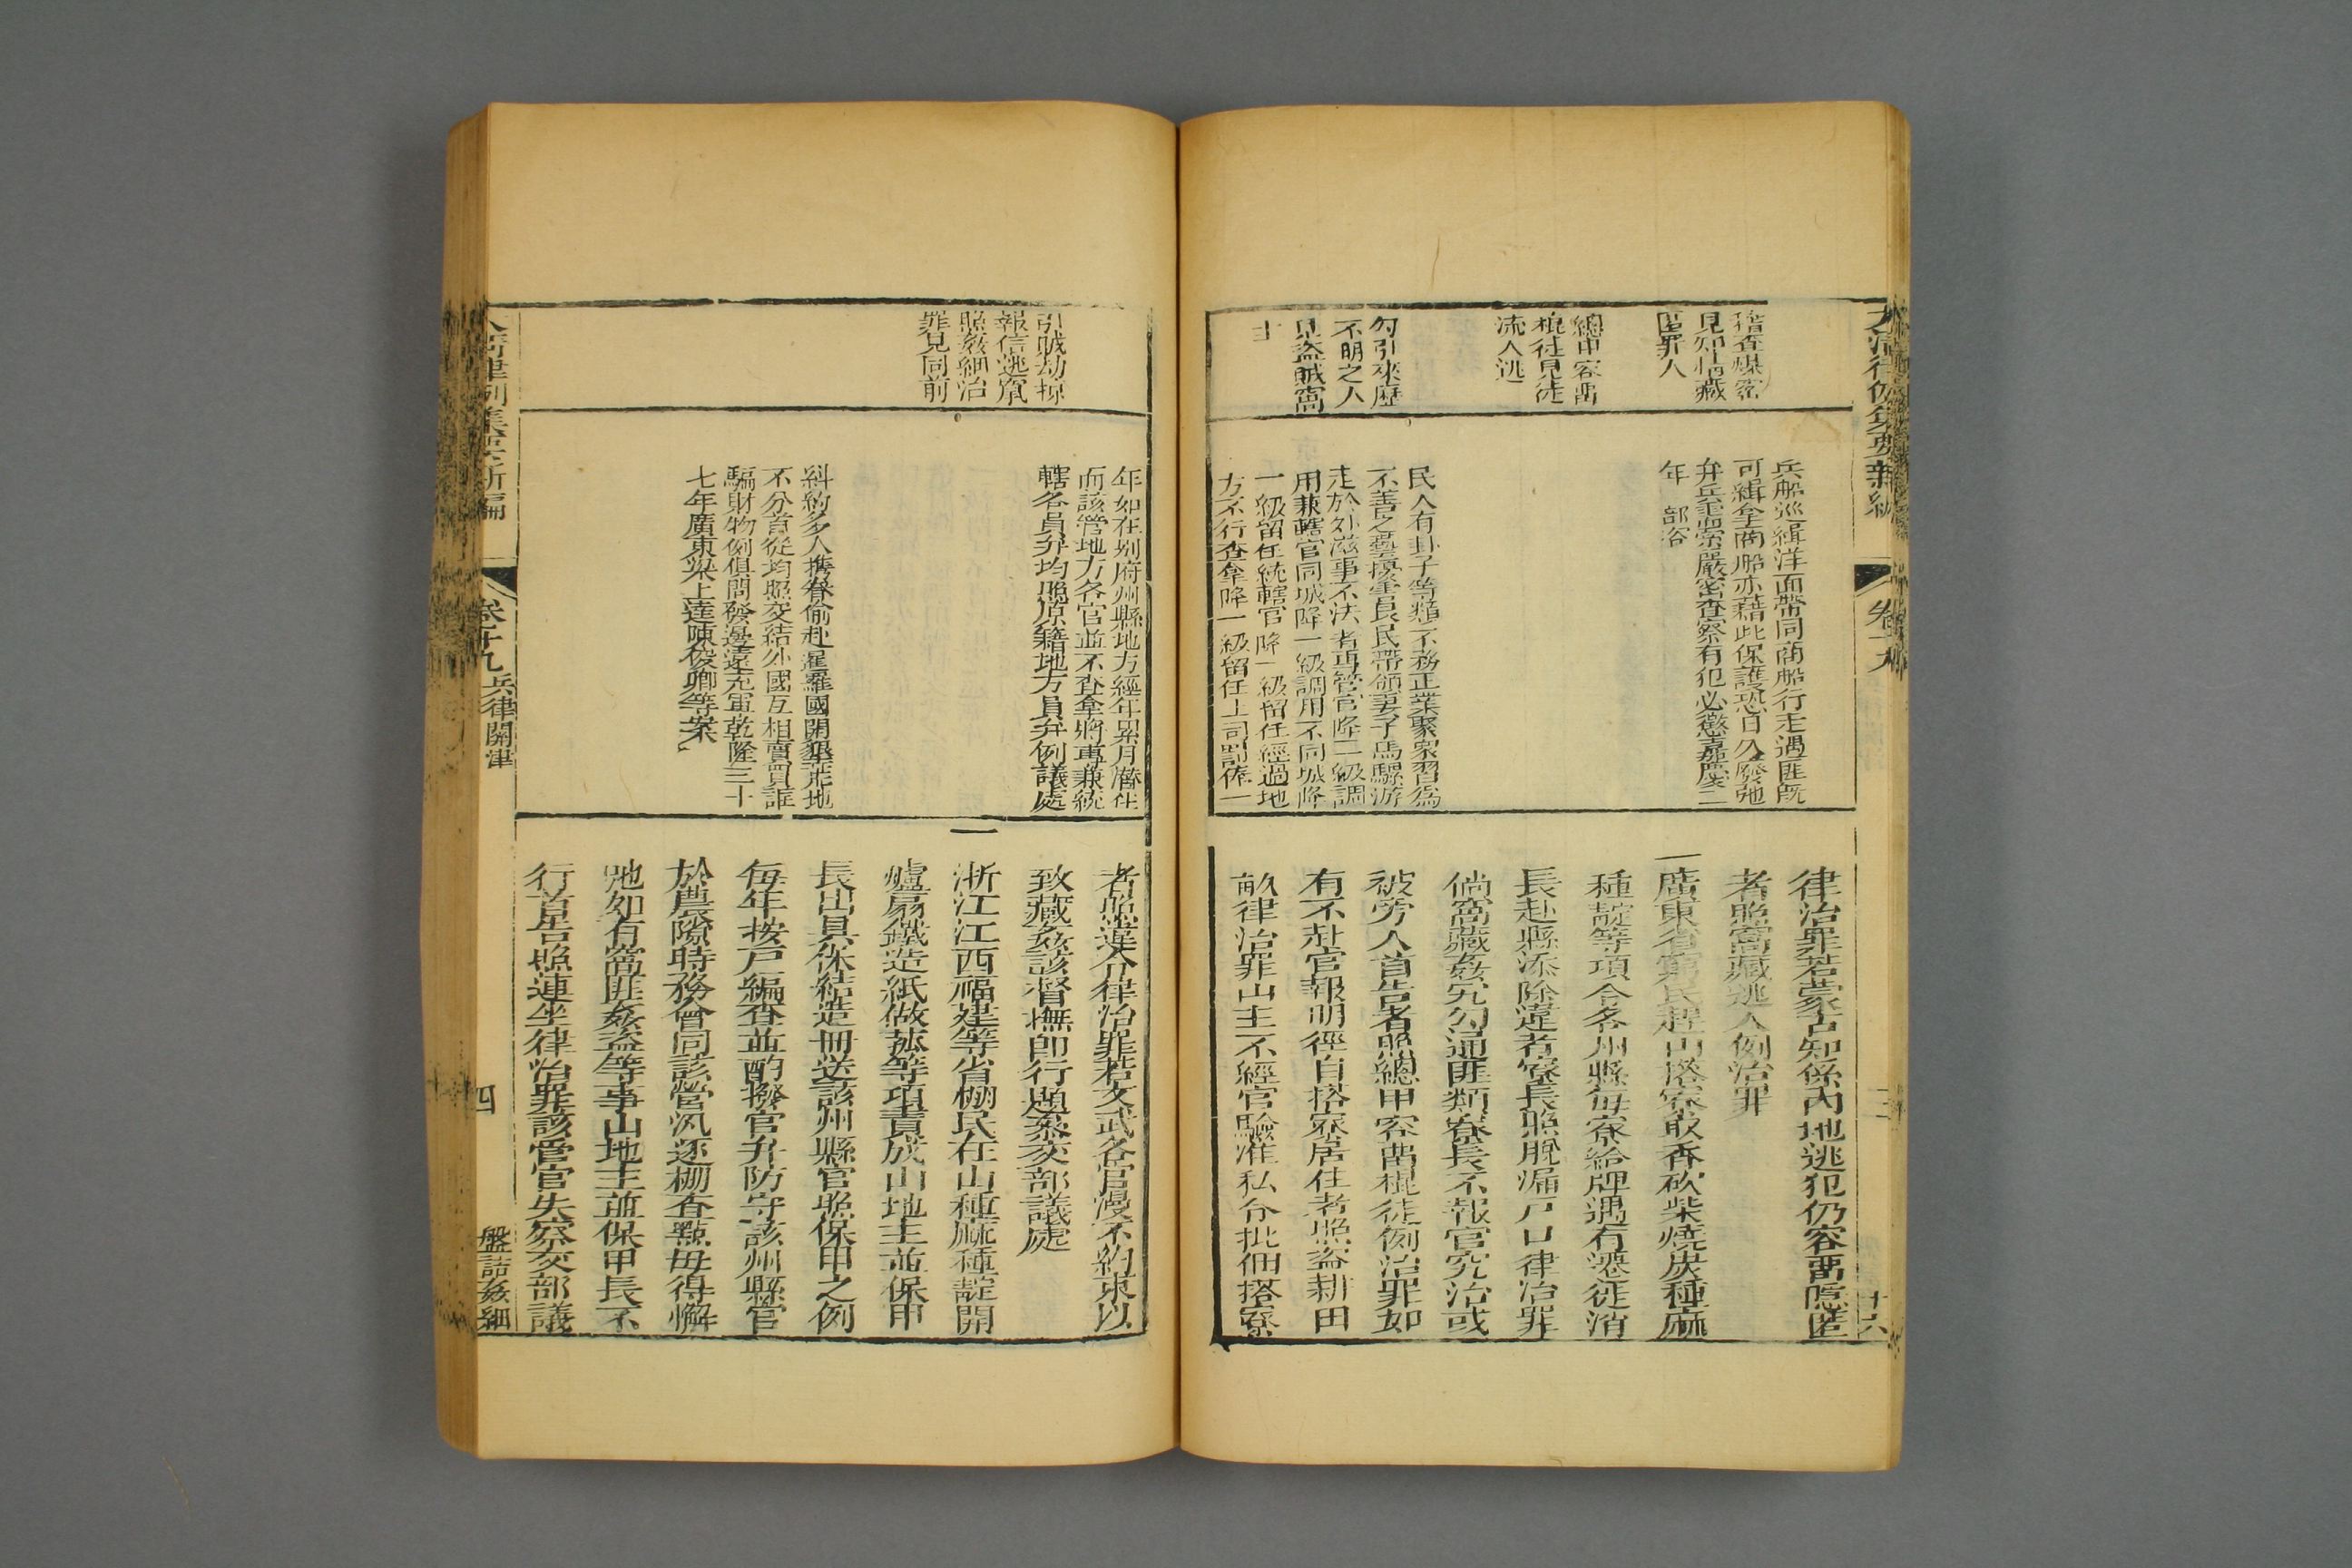 稽查煤窑
見知情藏
匿罪人
總甲容畱
棍徒見徒
流人逃
勾引來歷
不明之人
見盜賊窩
主
兵船巡緝洋面帶同商船行走遇匪旣
可緝拿商船亦藉此保護恐日久廢弛
弁兵需索嚴密查察有犯必懲嘉慶二
年 部咨
民人有卦子等類不務正業聚衆習爲
不善之藝擾害良民帶領妻子馬騾游
走於外滋事不法者專管官降二級調
用兼轄官同城降一級調用不同城降
一級留任統轄官降一級留任經過地
方不行查拿降一級留任上司罰俸一
律治罪若蒙古知係內地逃犯仍容畱隱匿
者照窩藏逃人例治罪
一廣東省窮民趕山搭寮取香砍柴燒炭種麻
種靛等項令各州縣每寮給牌遇有遷徙消
長赴縣添除違者寮長照脫漏戶口律治罪
倘窩藏姦宄勾通匪類寮長不報官究治或
被旁人首告者照總甲容畱棍徒例治罪如
有不赴官報明徑自搭寮居住者照盜耕田
畝律治罪山主不經官驗准私令批佃搭寮
引賊劫掠
報信逃竄
照姦細治
罪見同前
年如在别府州縣地方經年累月潛住
而該管地方各官並不查拿將專兼統
轄各員弁均照原籍地方員弁例議處
糾約多人携眷偷赴暹羅國開墾荒地
不分首從均照交結外國互相賣買誆
騙財物例俱問發邊遠充軍乾隆三十
七年廣東梁上達陳俊卿等案
者照違令律治罪若文武各官漫不約束以
致藏姦該督撫卽行題參交部議處
一浙江江西福建等省棚民在山種麻種靛開
爐扇鐵造紙做菰等項責成山地主並保甲
長出具保結造冊送該州縣官照保甲之例
每年按戶編查並酌撥官弁防守該州縣官
於農隙時務會同該營汛逐棚查點毋得懈
弛如有窩匪姦盜等事山地主並保甲長不
行首告照連坐律治罪該管官失察交部議
卷十九
兵律關津
四
盤詰姦細